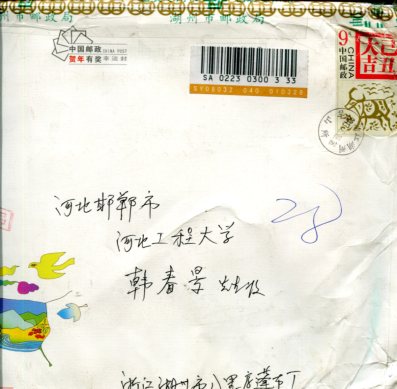 州市邮政局 湖州市邮政局
中国邮政 CHINA POST
贺年有奖 幸运封
SA 0223 0300 3 33
SY08032 040 010228
9
中国邮政
CHINA
己丑
大吉
河北邯郸市
河北工程大学
韩春景 先生收
28
浙江湖州市八里店